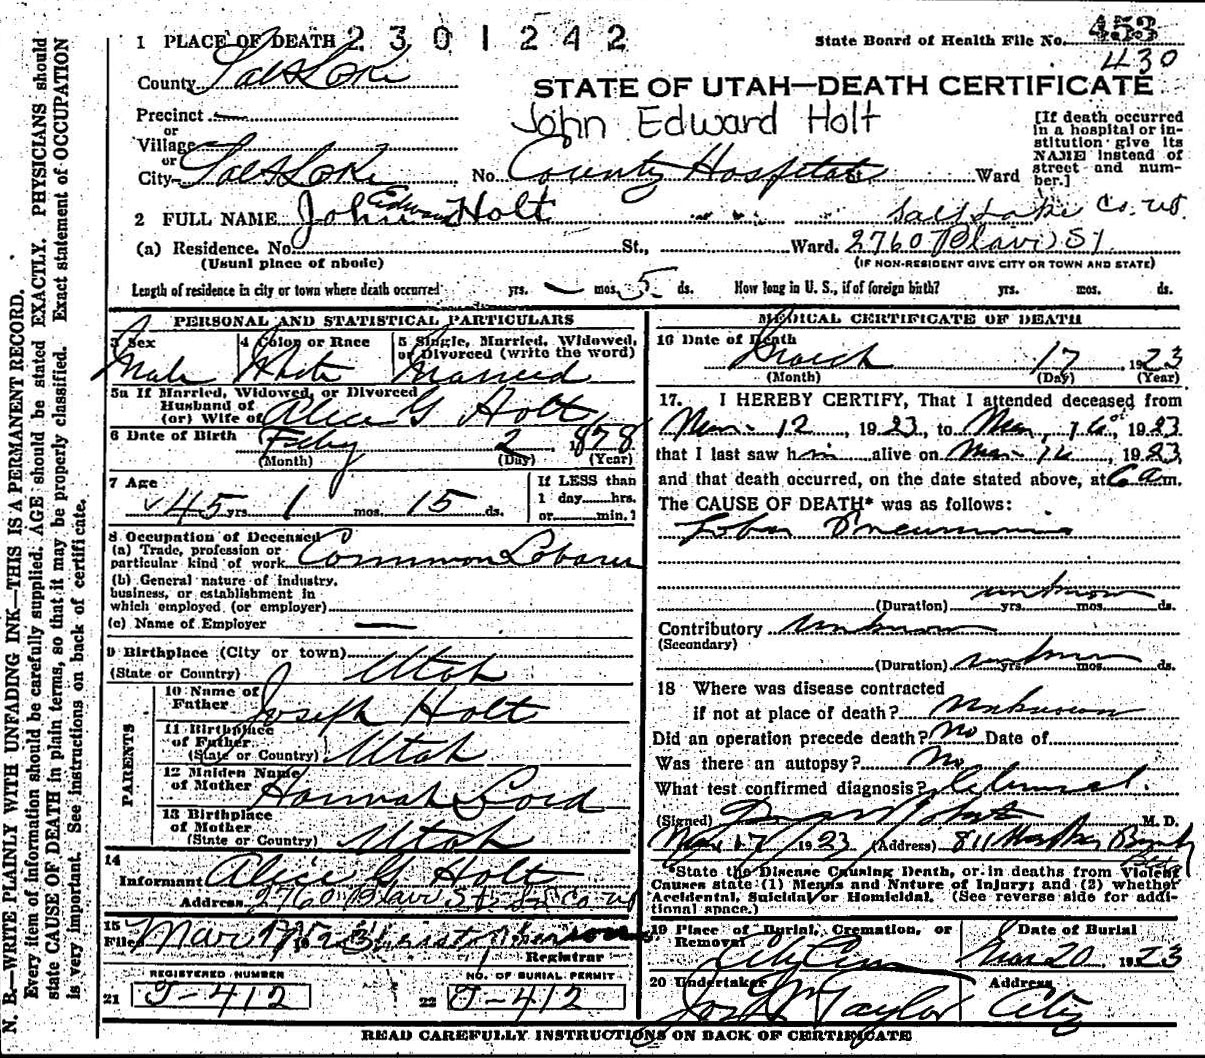 N. B.—WRITE PLAINLY WITH UNFADING INK—THIS IS A PERMANENT RECORD.
Every item of information should be carefully supplied. AGE should be stated EXACTLY. PHYSICIANS should
state CAUSE OF DEATH in plain terms, so that it may be properly classified. Exact statement of OCCUPATION
is very important. See instructions on back of certificate.
1 PLACE OF DEATH 2301242
State Board of Health File No. 453
430
County Salt Lake
STATE OF UTAH—DEATH CERTIFICATE
Precinct
John Edward Holt
or
Village
or
City Salt Lake No. County Hospital St. Ward
[If death occurred
in a hospital or in-
stitution give its
NAME instead of
street and num-
ber.]
2 FULL NAME John Edward Holt
Salt Lake Co. Ut.
(a) Residence. No. St., Ward. 2760 St
(Usual place of abode)
(IF NON-RESIDENT GIVE CITY OR TOWN AND STATE)
Length of residence in city or town where death occurred yrs. — mos. 5 ds. How long in U. S., if of foreign birth? yrs. mos. ds.
PERSONAL AND STATISTICAL PARTICULARS
3 Sex
Male
4 Color or Race
White
5 Single, Married, Widowed,
or Divorced (write the word)
Married
5a If Married, Widowed, or Divorced
Husband of
(or) Wife of Alice G Holt
6 Date of Birth
Feby 2 1878
(Month) (Day) (Year)
7 Age
45 yrs. 1 mos. 15 ds.
If LESS than
1 day......hrs.
or......min.?
8 Occupation of Deceased
(a) Trade, profession or
particular kind of work Common Laborer
(b) General nature of industry,
business, or establishment in
which employed (or employer)
(c) Name of Employer —
9 Birthplace (City or town)
(State or Country) Utah
PARENTS
10 Name of
Father Joseph Holt
11 Birthplace
of Father
(State or Country) Utah
12 Maiden Name
of Mother Hannah
13 Birthplace
of Mother
(State or Country) Utah
14
Informant Alice G Holt
Address 2760 St. S. L. Co. Ut
15
Filed Mar 17 1923
Registrar
REGISTERED NUMBER
21 J-412
NO. OF BURIAL PERMIT
22 J-412
MEDICAL CERTIFICATE OF DEATH
16 Date of Death
March 17 1923
(Month) (Day) (Year)
17. I HEREBY CERTIFY, That I attended deceased from
Mar. 12, 1923, to Mar. 16, 1923
that I last saw him alive on Mar. 16, 1923,
and that death occurred, on the date stated above, at 6 a m.
The CAUSE OF DEATH* was as follows:
Lobar Pneumonia
unknown
(Duration) yrs. mos. ds.
Contributory unknown
(Secondary)
(Duration) unknown yrs. mos. ds.
18 Where was disease contracted
if not at place of death? unknown
Did an operation precede death? No Date of
Was there an autopsy? No
What test confirmed diagnosis? Clinical.
(Signed) M. D.
Mar 17 1923 (Address) 811
*State the Disease Causing Death, or in deaths from Violent
Causes state (1) Means and Nature of Injury; and (2) whether
Accidental, Suicidal or Homicidal. (See reverse side for addi-
tional space.)
19 Place of Burial, Cremation, or
Removal
City Cem
Date of Burial
Mar 20 1923
20 Undertaker
Jos Wm Taylor
Address
City
READ CAREFULLY INSTRUCTIONS ON BACK OF CERTIFICATE